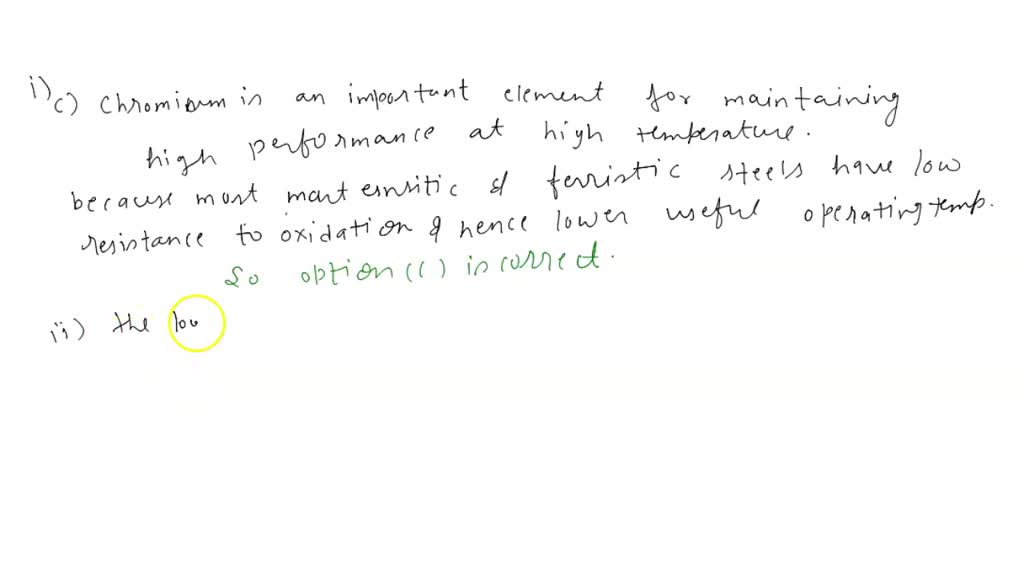 i) c) chromium is an important element for maintaining
high performance at high temperature.
because most martensitic & ferristic steels have low
resistance to oxidation & hence lower useful operating temp.
So option (c) is correct.
ii) the low